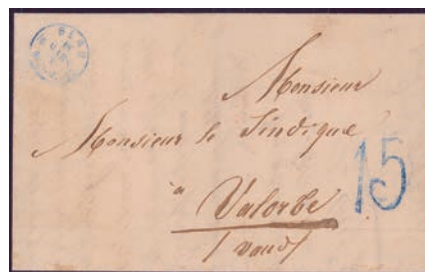 Monsieur
Monsieur le Sindique
à
Valorbe
/ vaud /
15